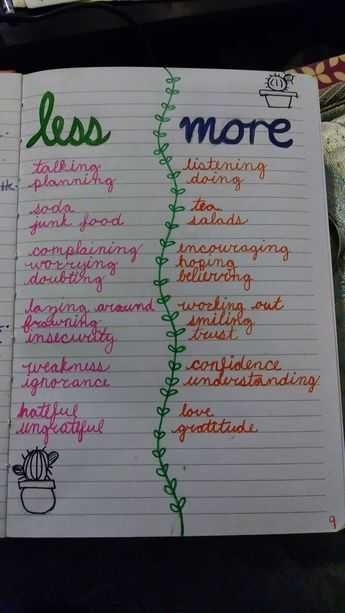 less
talking
planning
soda
junk food
complaining
worrying
doubting
laying around
frowning
insecurity
weakness
ignorance
hateful
ungrateful
more
listening
doing
tea
salads
encouraging
hoping
believing
working out
smiling
trust
confidence
understanding
love
gratitude
9